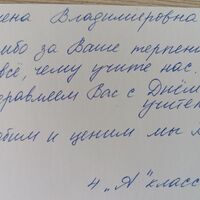 ена Владимировна
ибо за Ваше терпени
всё, чему учите нас.
дравляем Вас с Днём
учител
юбим и ценим мы
4 „А" класс